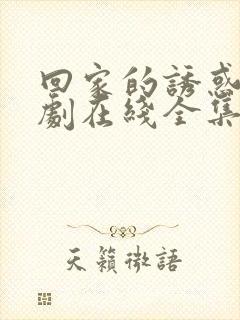 回家的誘惑
劇在綫全集
天籟微語